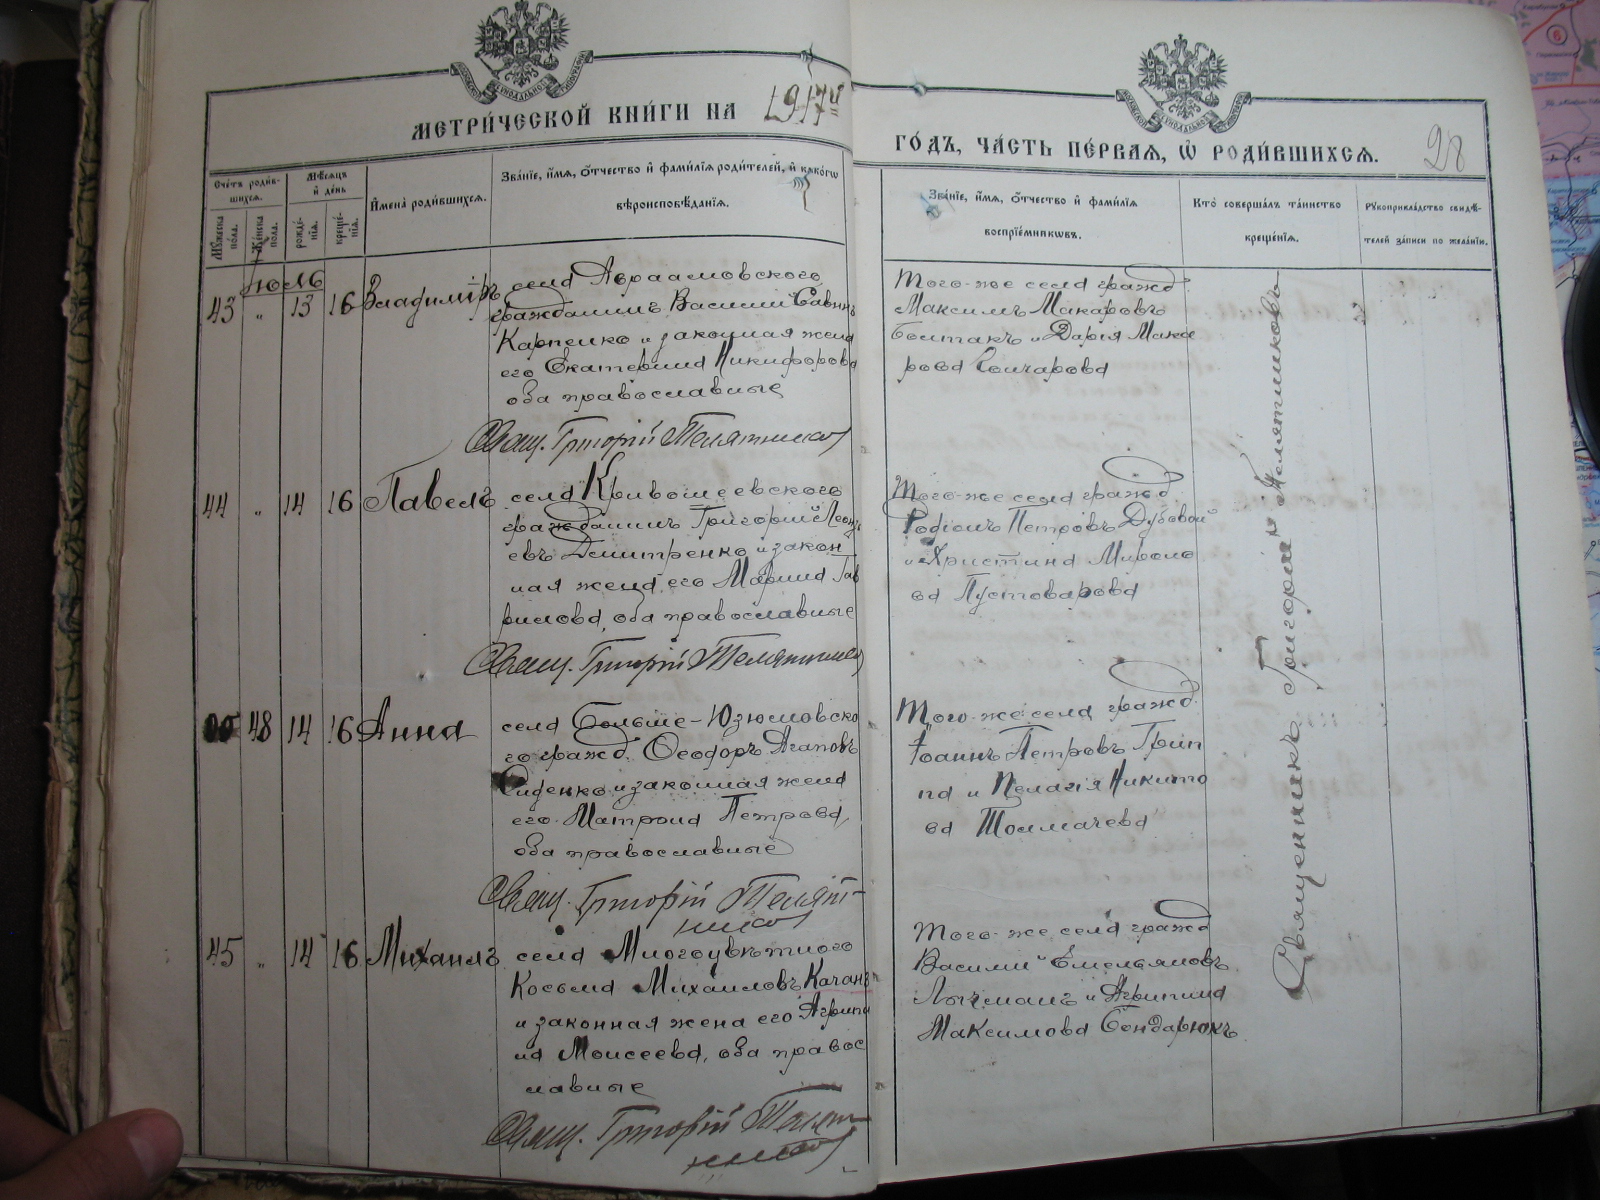 МЕТРИ́ЧЕСКОЙ КНИ́ГИ НА 1917й
ГО́ДЪ, ЧА́СТЬ ПЕ́РВАЯ, Ѿ РОДИ́ВШИХСѦ.
28
Сче́тъ роди́в-
шихсѧ.
Мꙋ́жеска
по́ла.
Же́нска
по́ла.
Мѣ́сѧцъ
и҆ де́нь
рожде́-
нїѧ.
креще́-
нїѧ.
И҆мена̀ роди́вшихсѧ.
Зва́нїе, и҆́мѧ, ѻ҆́тчество и҆ фами́лїѧ роди́телей, и҆ како́гѡ
вѣроисповѣ́данїѧ.
Зва́нїе, и҆́мѧ, ѻ҆́тчество и҆ фами́лїѧ
воспрїе́мникѡвъ.
Кто̀ соверша́лъ та́инство
креще́нїѧ.
Рꙋкоприкла́дство свидѣ́-
телей за́писи по жела́нїю.
Июль
43 „ 13 16 Владиміръ
села Авраамовского
гражданинъ Василий Савинъ
Карпенко и законная жена
его Екатерина Никифорова
оба православные
Свящ. Григорій Телятников
Того-же села гражд
Максимъ Макаровъ
Болтакъ и Дарія Мака
рова Гончарова
44 „ 14 16 Павелъ
села Кривошеевского
гражданинъ Григорий Леонт
евъ Дмитренко и закон
ная жена его Марина Гав
рилова, оба православные
Свящ. Григорій Телятников
Того-же села гражд
Родіонъ Петровъ Дубовой
и Христина Мироно
ва Пустоварова
48 14 16 Анна
села Больше-Юзюмовско
го гражд. Ѳеодоръ Агаповъ
Сиденко и законная жена
его Матрона Петрова,
оба православные
Свящ. Григорій Телят-
ников
Того-же села гражд.
Іоаннъ Петровъ Грип
па и Пелагія Никито
ва Толмачева
45 „ 14 16 Михаилъ
села Многоцвѣтного
Косьма Михаиловъ Качанъ
и законная жена его Агрипи
на Моисеева, оба правос
лавные
Свящ. Григорій Телят
ников
Того-же села гражд
Василий Емельяновъ
Лычманъ и Агрипина
Максимова Бондарюкъ
Священникъ Григорий Телятниковъ